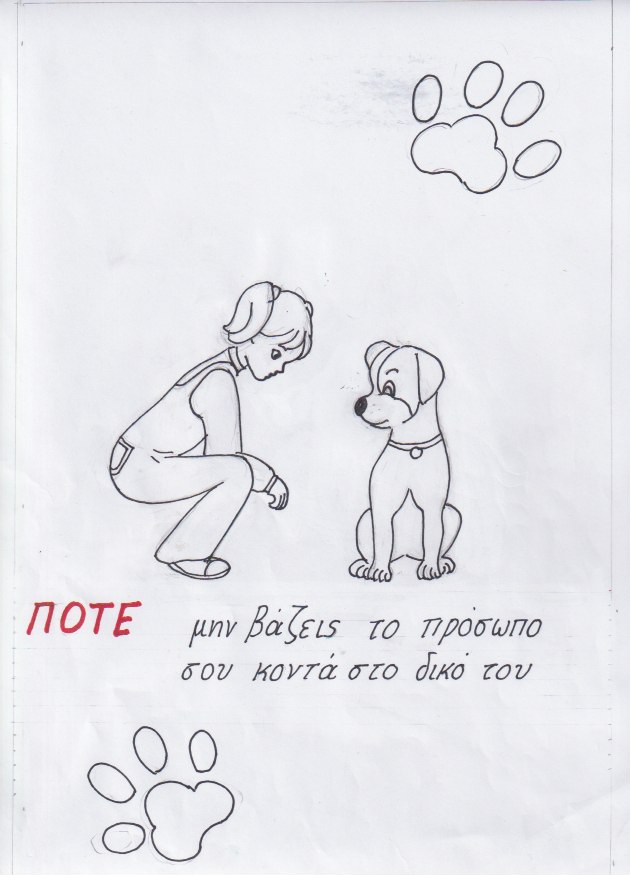 ΠΟΤΕ μην βάζεις το πρόσωπο
σου κοντά στο δικό του